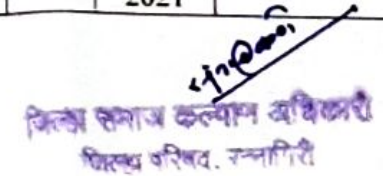 2021
जिल्हा समाज कल्याण अधिकारी
जिल्हा परिषद. रत्नागिरी